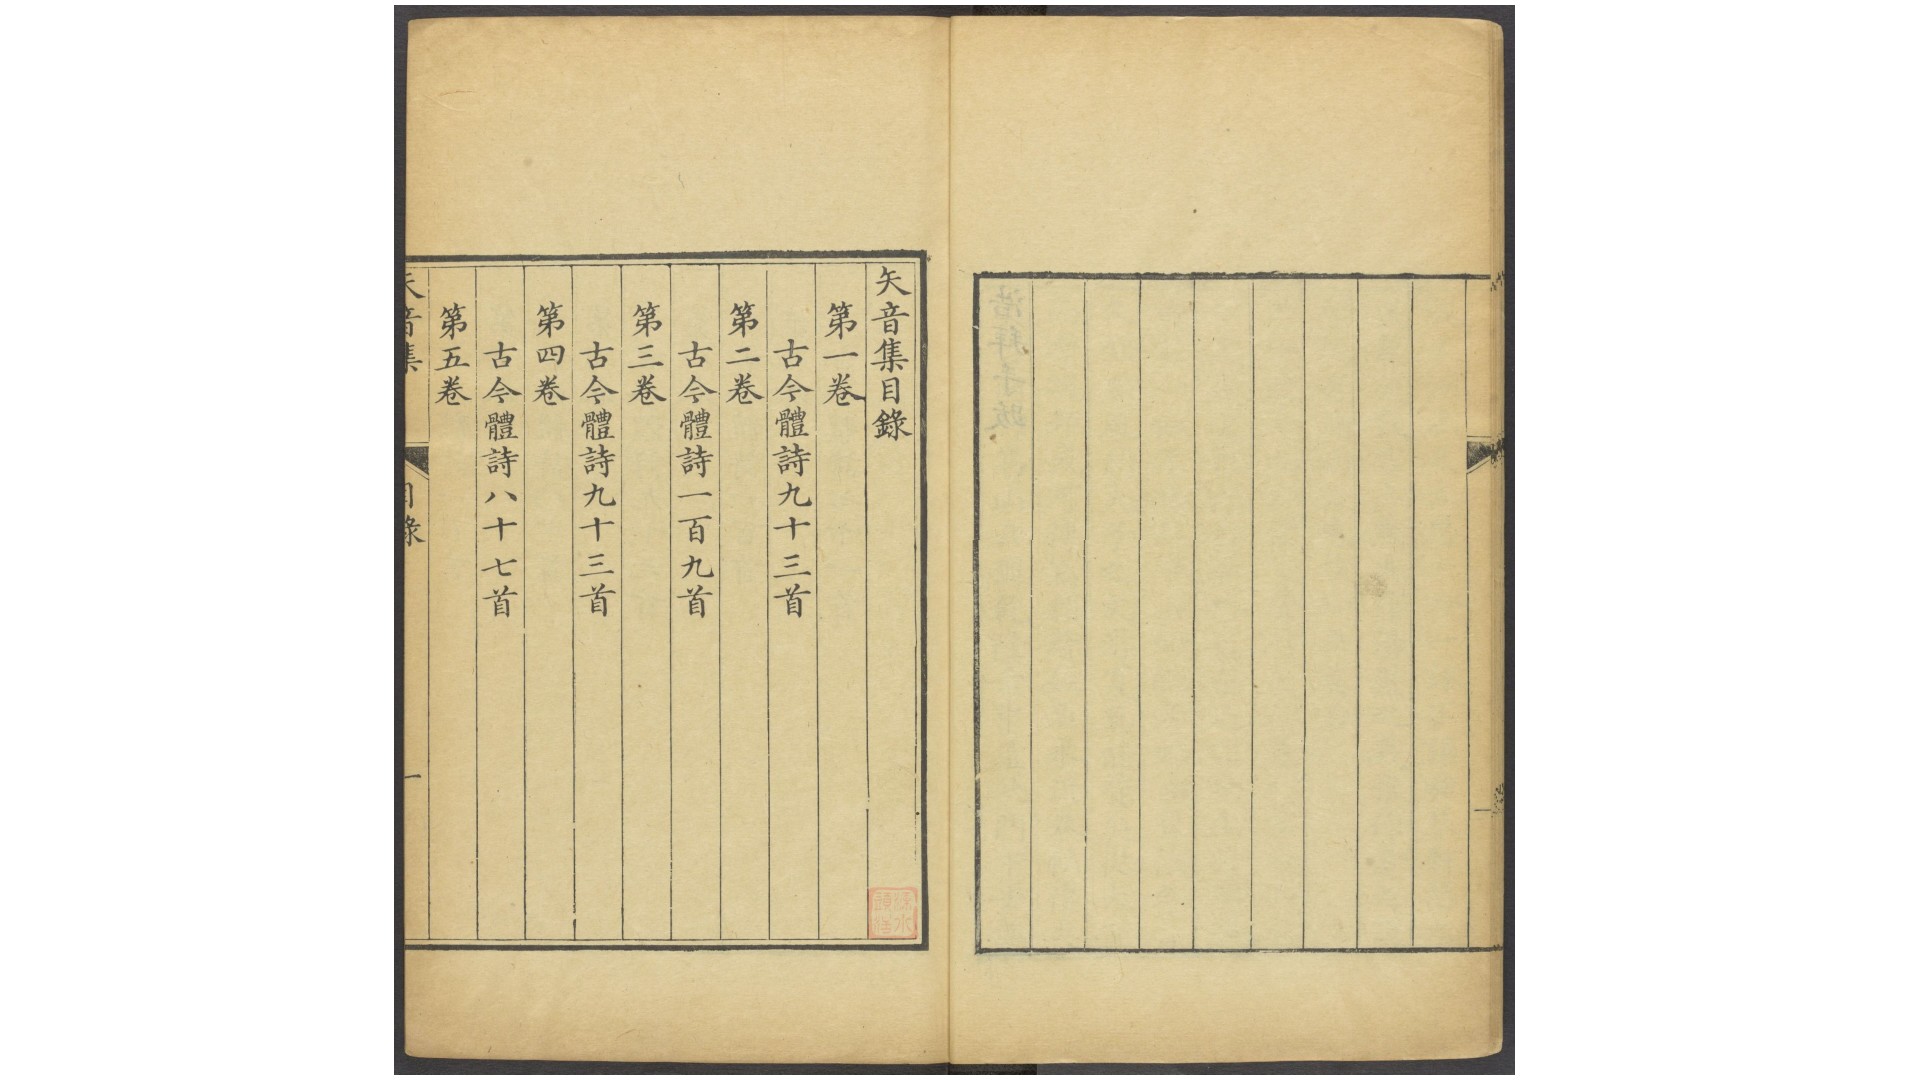 矢音集目錄
第一卷
古今體詩九十三首
第二卷
古今體詩一百九首
第三卷
古今體詩九十三首
第四卷
古今體詩八十七首
第五卷
矢音集
目錄
一